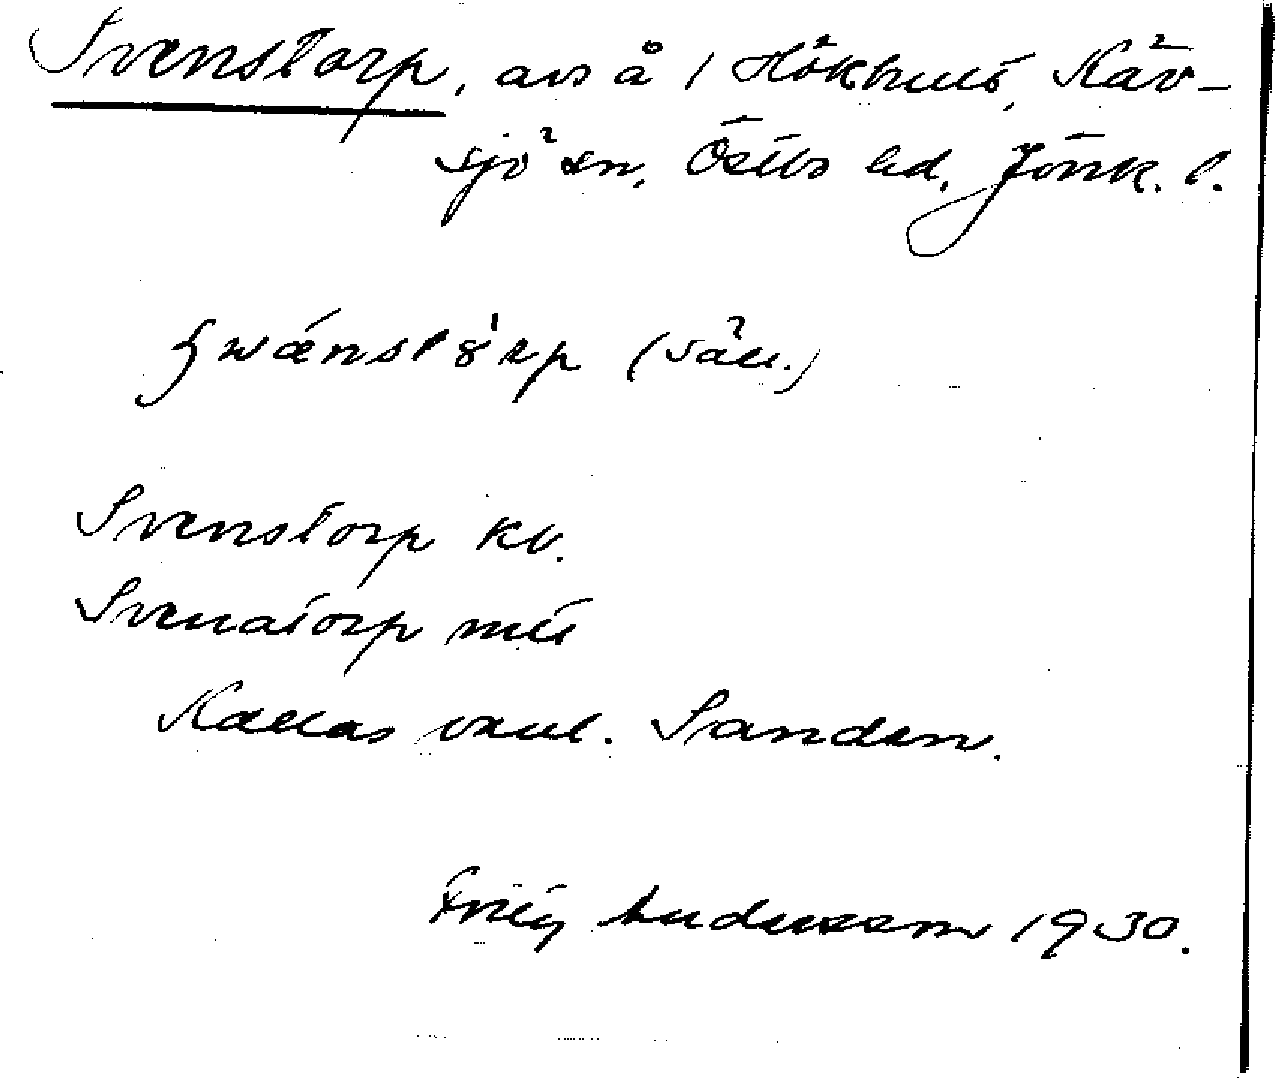 Svenstorp, avs å 1 Hökhult, Käv-
sjö sn, Östbo hd, Jönk. l.
swǽnstȯrp (säll.)
Svenstorp kv.
Svenstorp mtl
Kallas vanl. Sanden.
Andersson 1930.